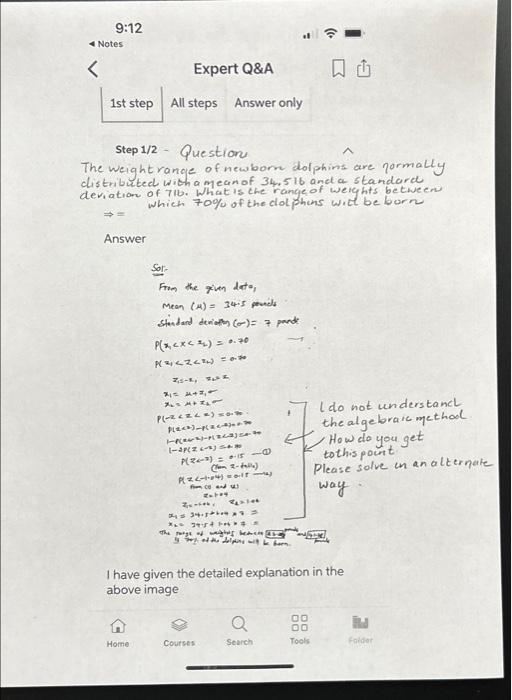 9:12
◂ Notes
Expert Q&A
1st step All steps Answer only
Step 1/2 - Question
The weight range of newborn dolphins are normally
distributed with a mean of 34.5 lb and a standard
deviation of 7lb. What is the range of weights between
which 70% of the dolphins will be born
⇒ =
Answer
Sol:-
From the given data,
Mean (μ) = 34.5 pounds
Standard deviation (σ) = 7 pounds
P(x₁<x<x₂) = 0.70
P(z₁<z<z₂) = 0.70
z₁=-z, z₂=z
x₁ = μ+z₁σ
x₂ = μ+z₂σ
P(-z<z<z) = 0.70
P(z<z)-P(z<-z)=0.70
1-P(z<-z)-P(z<-z)=0.70
1-2P(z<-z)=0.70
P(z<-z) = 0.15 —①
(from z-table)
P(z<-1.04) = 0.15 —②
from (1) and (2)
z=1.04
z₁=-1.04, z₂=1.04
x₁ = 34.5+1.04 * 7 =
x₂ = 34.5+1.04 * 7 =
The range of weights between pounds and pounds
is 70% of the dolphins will be born.
I do not understand
the algebraic method
How do you get
to this point
Please solve in an alternate
way.
I have given the detailed explanation in the
above image
Home Courses Search Tools Folder